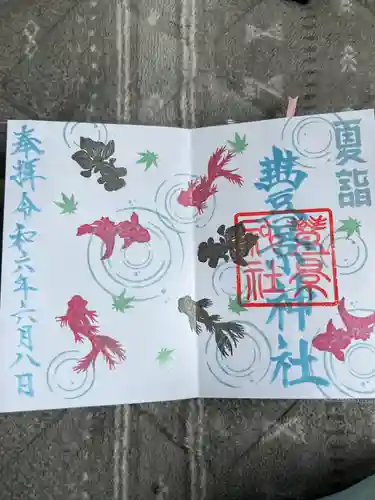 夏詣
豊景神社
豊景
神社
奉拝 令和六年六月八日